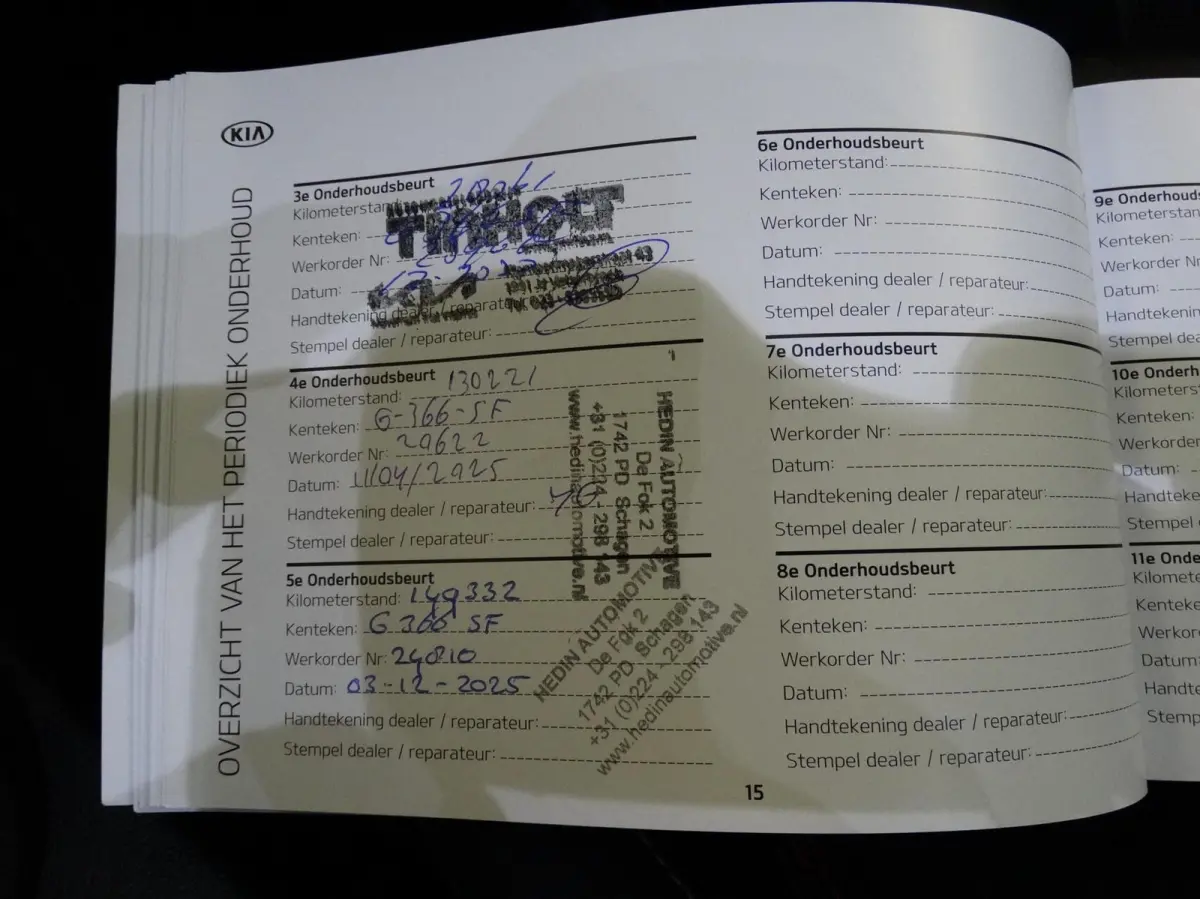 KIA
OVERZICHT VAN HET PERIODIEK ONDERHOUD
3e Onderhoudsbeurt
Kilometerstand:
Kenteken:
Werkorder Nr:
Datum:
Handtekening dealer / reparateur:
Stempel dealer / reparateur:
4e Onderhoudsbeurt
Kilometerstand: 130221
Kenteken: G-366-SF
Werkorder Nr: 29622
Datum: 11/04/2025
Handtekening dealer / reparateur:
Stempel dealer / reparateur:
HEDIN AUTOMOTIVE
De Fok 2
1742 PD Schagen
+31 (0)224 - 298 143
www.hedinautomotive.nl
5e Onderhoudsbeurt
Kilometerstand: 149332
Kenteken: G 366 SF
Werkorder Nr: 24810
Datum: 03-12-2025
Handtekening dealer / reparateur:
Stempel dealer / reparateur:
HEDIN AUTOMOTIVE
De Fok 2
1742 PD Schagen
+31 (0)224 - 298 143
www.hedinautomotive.nl
6e Onderhoudsbeurt
Kilometerstand:
Kenteken:
Werkorder Nr:
Datum:
Handtekening dealer / reparateur:
Stempel dealer / reparateur:
7e Onderhoudsbeurt
Kilometerstand:
Kenteken:
Werkorder Nr:
Datum:
Handtekening dealer / reparateur:
Stempel dealer / reparateur:
8e Onderhoudsbeurt
Kilometerstand:
Kenteken:
Werkorder Nr:
Datum:
Handtekening dealer / reparateur:
Stempel dealer / reparateur:
15
9e Onderhouds
Kilometerstan
Kenteken:
Werkorder Nr
Datum:
Handtekenin
Stempel dea
10e Onderh
Kilometers
Kenteken:
Werkorder
Datum:
Handteke
Stempel
11e Onde
Kilomete
Kenteke
Werkor
Datum:
Handte
Stemp